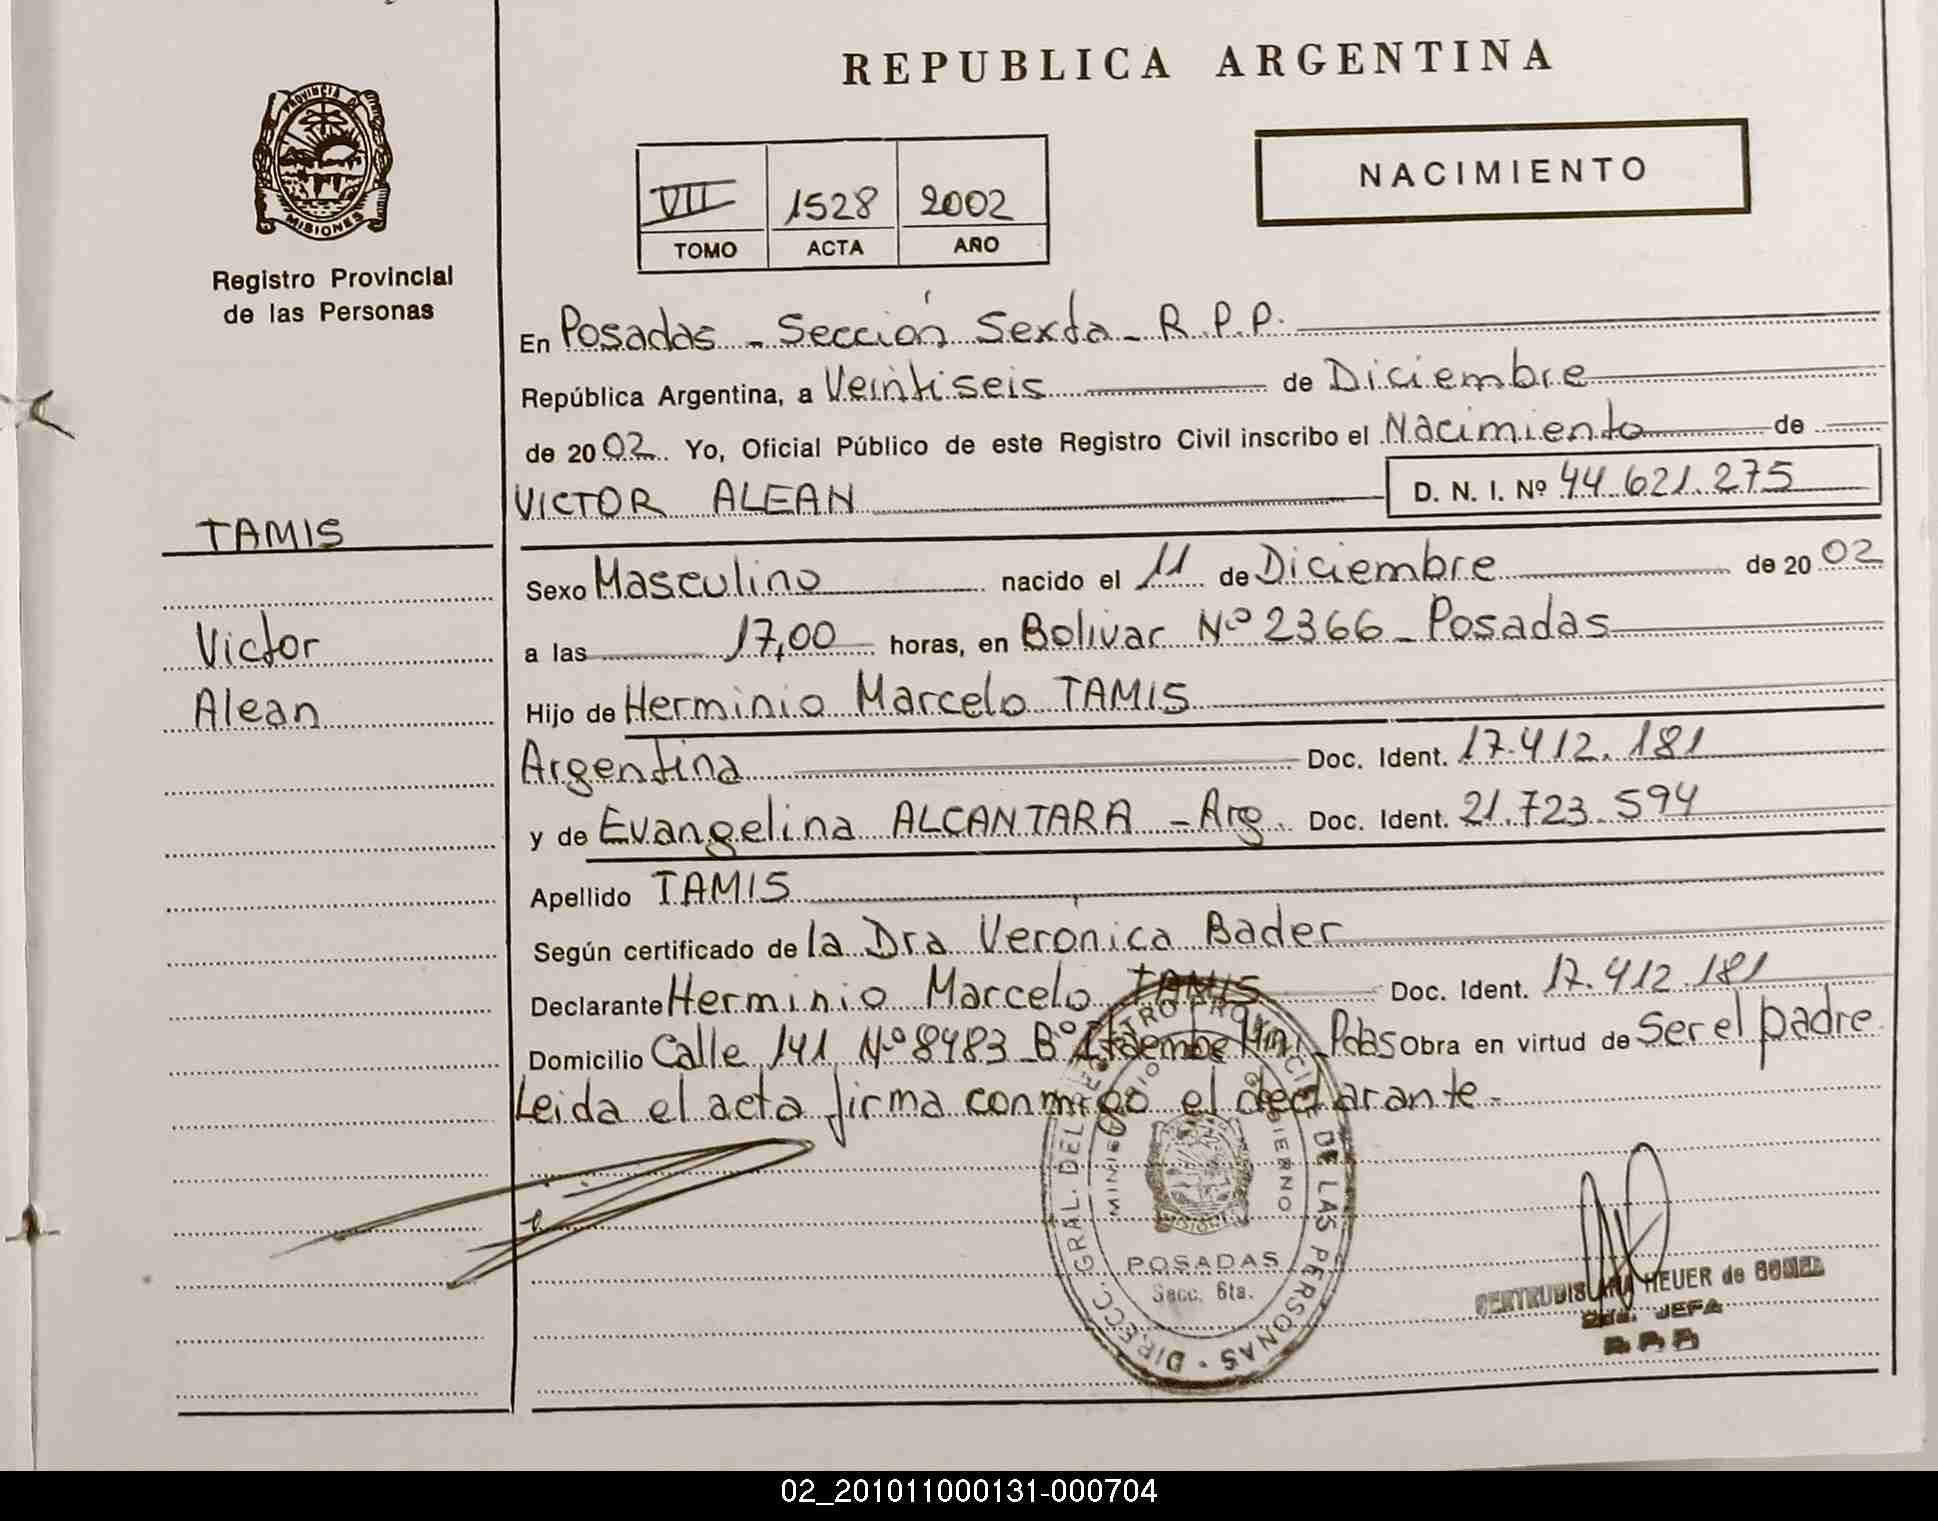 REPUBLICA ARGENTINA
PROVINCIA DE
MISIONES
Registro Provincial
de las Personas
NACIMIENTO
VII 1528 2002
TOMO ACTA AÑO
En Posadas - Sección Sexta - R.P.P.
República Argentina, a Veintiseis de Diciembre
de 2002 Yo, Oficial Público de este Registro Civil inscribo el Nacimiento de
VICTOR ALEAN D. N. I. Nº 44.621.275
TAMIS
Victor
Alean
Sexo Masculino nacido el 11 de Diciembre de 2002
a las 17,00 horas, en Bolivar Nº 2366 - Posadas
Hijo de Herminio Marcelo TAMIS
Argentina Doc. Ident. 17.412.181
y de Evangelina ALCANTARA - Arg. Doc. Ident. 21.723.594
Apellido TAMIS
Según certificado de la Dra Veronica Bader
Declarante Herminio Marcelo TAMIS Doc. Ident. 17.412.181
Domicilio Calle 141 Nº 8483 Bº Itaembe Mini Pdas Obra en virtud de Ser el padre
Leida el acta firma conmigo el declarante.-
DIRECC. GRAL. DEL REGISTRO PROVINCIAL DE LAS PERSONAS
POSADAS
Secc. 6ta.
GERTRUDIS HEUER de GOMEZ
JEFA
02_201011000131-000704